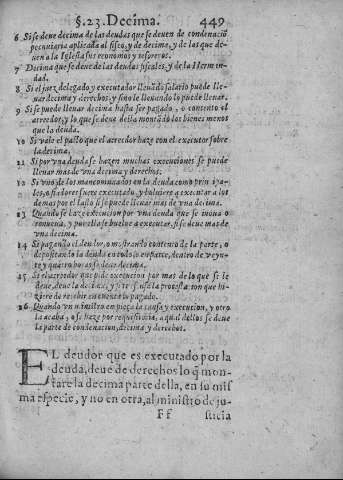 §.23. Decima. 449
6 Si se deue decima de las deudas que se deuen de condenaciõ
pecuniaria aplicada al fisco, y de decima, y de las que de-
uen a la Iglesia sus economos y tesoreros.
7 Decima que se deue de las deudas fiscales, y de la Herman
dad.
8 Si el juez delegado y executador lleuãdo salario puede lle-
uar decima y derechos, y si no le lleuando lo puede lleuar.
9 Si se puede lleuar decima hasta ser pagado, o contento el
acreedor, y lo que se deue della montãdo los bienes menos
que la deuda.
10 Si vale el pacto que el acreedor haze con el executor sobre
la decima.
11 Si por vna deuda se hazen muchas execuciones se puede
lleuar mas de vna decima y derechos.
12 Si vno de los mancomunados en la deuda como principa-
les, o fiador es executado, y boluiere a executar a los
demas por el lasto si se puede lleuar mas de vna decima.
13 Quando se haze execucion por vna deuda que se inoua o
renueua, y por ella se buelue a executar, si se deue mas de
vna decima.
14 Si pagando el deudor, o mostrando contento de la parte, o
depositando la deuda en todo o en parte, dentro de veyn-
te y quatro horas se deue decima.
15 Si el acreedor que pide execucion por mas de lo que se le
deue, deue la decima, y si se escusa protestacion que hi-
ziere de recebir en cuenta lo pagado.
16 Quando vn ministro empieça la causa y execucion, y otro
la acaba, o se haze por requisitoria, a qual dellos se deue
la parte de condenacion, decima y derechos.
EL deudor que es executado por la
deuda, deue de derechos lo q̃ mon-
tare la decima parte della, en su mis
ma especie, y no en otra, al ministro de ju-
Ff sticia